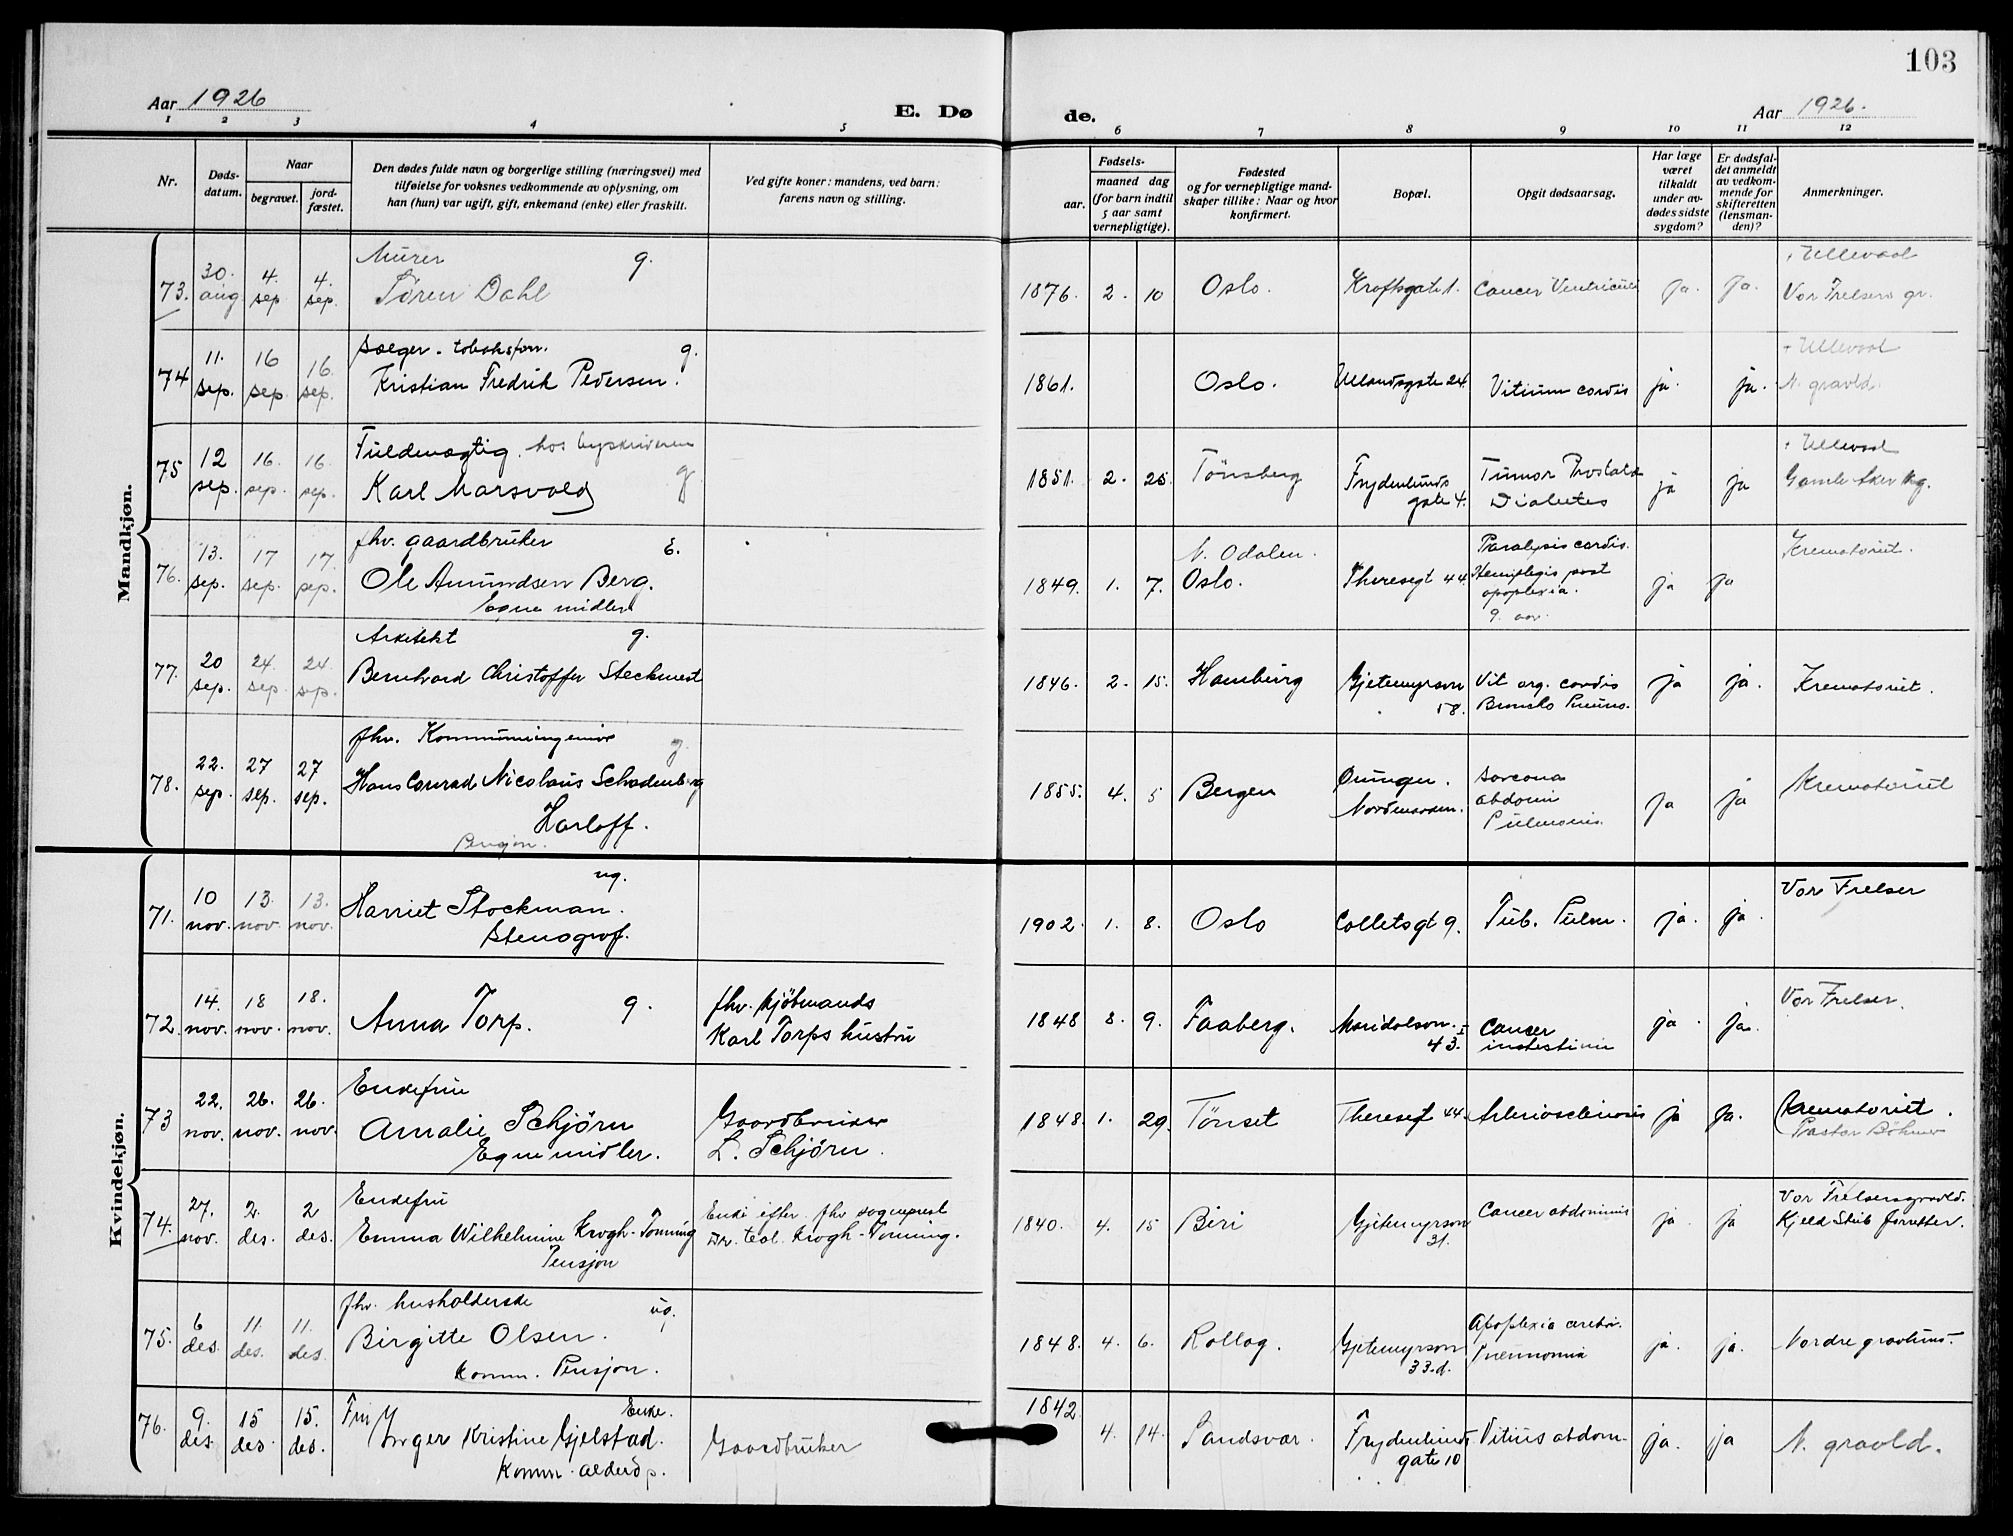 103
Aar 1926
E. Dø
de.
Aar 1926.
1 2 3 4 5 6 7 8 9 10 11 12
Nr.
Døds-
datum.
Naar
begravet.
jord-
fæstet.
Den dødes fulde navn og borgerlige stilling (næringsvei) med
tilføielse for voksnes vedkommende av oplysning, om
han (hun) var ugift, gift, enkemand (enke) eller fraskilt.
Ved gifte koner: mandens, ved barn:
farens navn og stilling.
Fødsels-
aar.
maaned dag
(for barn indtil
5 aar samt
vernepligtige).
Fødested
og for vernepligtige mand-
skaper tillike: Naar og hvor
konfirmert.
Bopæl.
Opgit dødsaarsag.
Har læge
været
tilkaldt
under av-
dødes sidste
sygdom?
Er dødsfal-
det anmeldt
av vedkom-
mende for
skifteretten
(lensman-
den)?
Anmerkninger.
Mandkjøn.
73. 30. aug 4. sep 4. sep.
Murer g.
Sören Dahl
1876. 2. 10 Oslo. Kroftsgate 1. Cancer Ventriculi ja. Ja.
+ Ullevaal
Vor Frelsers gr.
74 11. sep. 16 sep 16. sep.
g.
Kristian Fredrik Pedersen.
1861. Oslo. Ullandsgate 24. Vitium cordis ja. ja.
+ Ullevaal
N. gravld.
75 12 sep. 16. sep. 16. sep.
Fuldmægtig. hos byskriveren
Karl Marsvold g
1851. 2. 25 Tönsberg
Frydenlunds
gate 4.
Tumor Prostatae
Diabetes
ja ja
+ Ullevaal
Gamle Aker kg.
76. 13. sep. 17 sep. 17. sep.
fhv. gaardbruker E.
Ole Amundsen Berg.
Egne midler
1849. 1. 7.
N. Odalen.
Oslo.
Theresegt 44
Paralysis cordis.
Hemiplegis post
apoplexia.
9. aar.
ja ja Krematoriet.
77. 20 sep. 24. sep. 24 sep.
Arkitekt g.
Bernhard Christoffer Steckmest
1846. 2. 15. Hamburg
Gjetemyrsvn
58.
Vit org. cordis
ja ja. Krematoriet.
78. 22. sep. 27 sep. 27 sep.
fhv. Kommuneingeniør g.
Hans Conrad Nicolaus Schadenberg
Harloff.
Pensjon.
1855. 4. 5 Bergen
Nordmarken.
Sarcoma
abdomi
Pulmonis.
ja ja Krematoriet
Kvindekjøn.
71. 10 nov. 13. nov. 13. nov.
ug.
Harriet Stockman.
Stenograf.
1902. 1. 8. Oslo Colletsgt 9. Tub. Pulm. ja. ja. Vor Frelser
72. 14. nov. 18 nov. 18. nov.
Anna Torp. g.
fhv. kjöbmands
Karl Torps hustru
1848 8. 9. Faaberg.
Maridalsvn.
43.
Cancer
intestini
ja ja. Vor Frelser.
73 22. nov. 26. nov. 26. nov.
Enkefru
Amalie Schjörn
Egne midler.
Gaardbruker
L. Schjörn.
1848. 1. 29. Tönset Theresegt 44. Arteriosclerosis ja ja.
Krematoriet.
Pastor Böhmer
74. 27. nov. 2. des. 2 des.
Enkefru
Emma Wilhelmine Krogh-Tonning
Pensjon
Enke efter fhv sogneprest
Dr. teol. Krogh-Tonning.
1840. 4. 15 Biri
Gjetemyrsvn
31.
Cancer abdominis ja ja
Vor Frelsersgravld.
Kjeld Stub forretter.
75. 6 des. 11. des. 11. des
fhv. husholderske ug.
Birgitte Olsen.
Komm. Pensjon.
1848. 4. 6. Rollag.
Gjetemyrsvn
33.d.
Apoplexia cerebri.
Pneumonia
ja. ja. Nordre gravlund.
76. 9. des 15 des 15. des.
Fru Enke.
Inger Kristine Gjelstad.
Komm. alders p.
Gaardbruker
1842 4. 14. Sandsvær.
Frydenlunds
gate 10
abdom. ja. ja N. gravld.